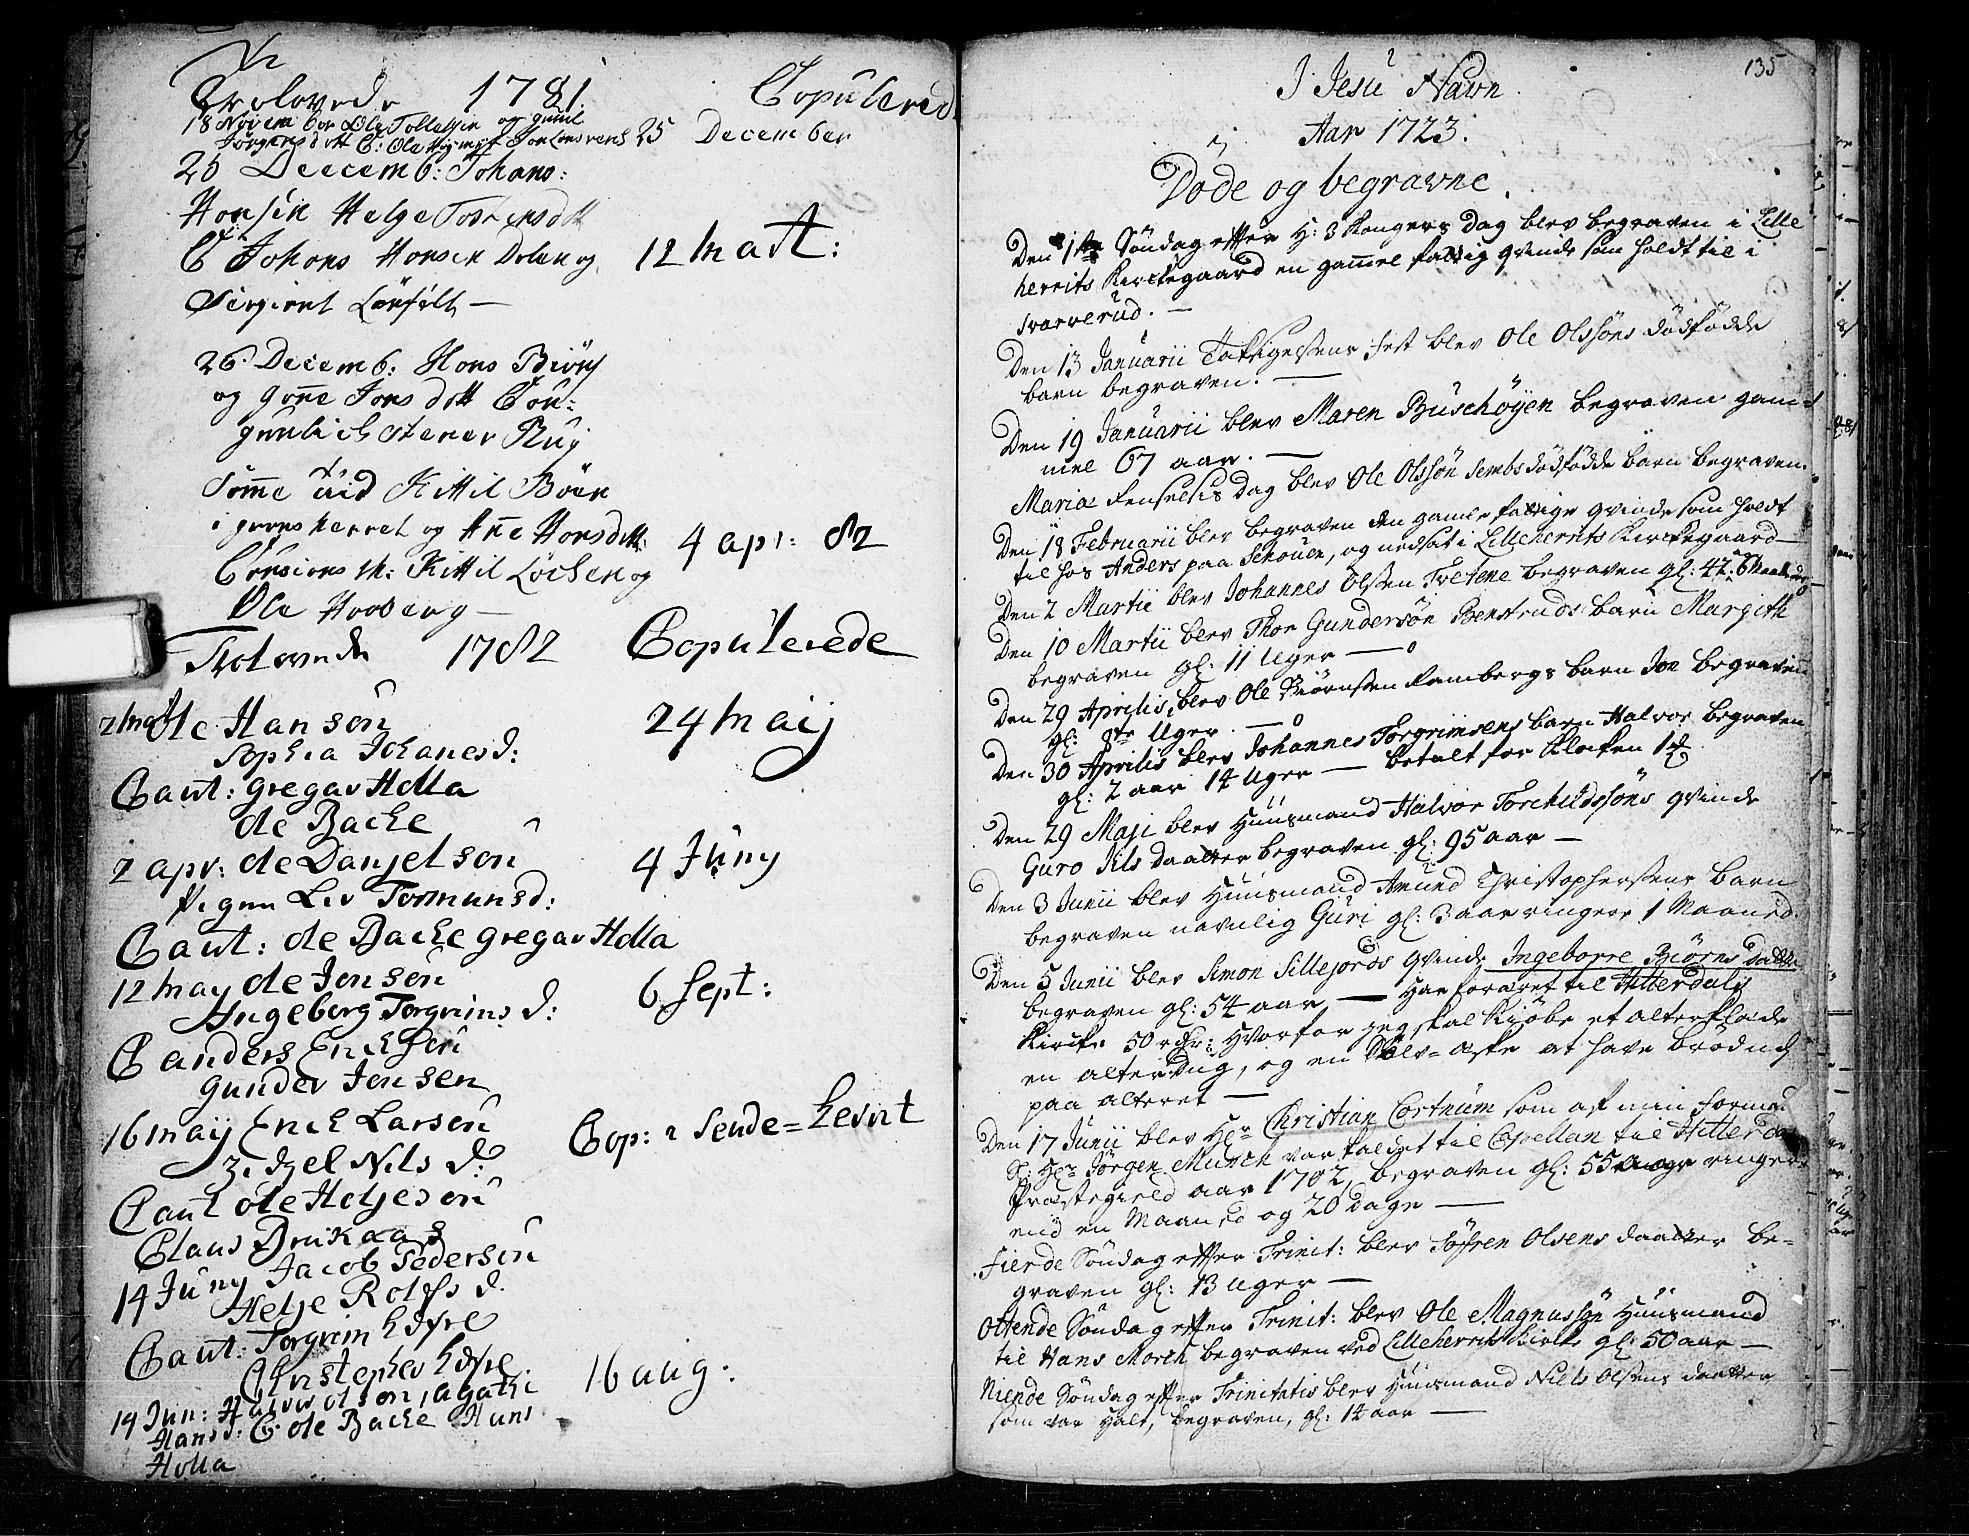 Trolovede 1781 Copulered
18 Novem ber Ole Tollefsen og gunil
25 December
25 Decemb: Johans:
Honsen Helge
C Johans Honsen Dolen og 12 Mart:
Sergient Lønfelt —
26 Decemb: Hons Biörs
og gone Jons dott Con:
Somme tiid Kittil Böen
og Ane Honsdott: 4 apr: 82
Kittil Löchen og
Ole Hooberg —
Trolovede 1782 Copulerede
2 Ole Hansen 24 Maij
Sophia Johanesd:
Caut: gregar Holla
ole Backe
2 apr: ole Danjelsen 4 Juny
Pigen Liv Tormunsd:
Caut: ole Backe gregar Holla
12 May ole Jonsen 6 Sept:
Ingeborg Torgrims d:
C anders Ericksen
gunder Jensen
16 Maij Erick Larsen
Zidzel Nils d: Cop: i
Caut ole Heljesen
Claus
14 Juny Jacob Pedersen
Helje Rolfs d.
Caut: Torgrim
Christopher 16 aug:
14 Jun: Halvor olson, agathe
Hans d: C: ole Backe Hans
Holla
135
I Jesu Navn
Aar 1723.
Døde og begravne.
Den 1ste Søndag effter H: 3 Kongers Dag blev begraven i Lille
herrits Kirckegaard en gamel fattig qvinde som holdt til i
Svarverud. —
Den 13 Januarii Taksigelsens fest blev Ole Olssøns dødfødde
barn begraven. —
Den 19 Januarii blev Maren Buschøyen begraven gam=
mel 67 aar. —
Mariæ Renselsis dag blev Ole Olssøn Sembs dødfødde barn begraven.
Den 18 Februarii blev begraven den gamle fattige qvinde som holdt
til hos Anders paa Schouen, og nedsat i Lilleherrits Kirckegaard —
Den 2 Martii blev Johannes Olssen Tretene begraven gl: 42
Den 10 Martii blev Thor Gundersøn Benstruds barn Margith
begraven gl: 11 Uger —
Den 29 Aprilis, blev Ole Biørnssen Rambergs barn Jon begraven
gl: 8te Uger. —
Den 30 Aprilis blev Johannes Torgrimsens barn Halvor begraven
gl: 2 aar 14 Uger — betalt for Klocken 1
Den 29 Maji blev Huusmand Halvor Torchildssøns qvinde
Guro Nils daatter begraven gl: 95 aar —
Den 3 Junii blev Huusmand Amund Christophersens barn
begraven navnlig Guri gl: 3 aar ringere 1 Maaned.
Den 5 Junii blev Simon Sillejords qvinde Ingeborre Biørns Daatter
begraven gl: 54 aar — Har foræret til Hitterdals
Kircke 50 rdr: Hvorfor jeg skal Kiøbe et alterklæde
en alterdug, og en Sølv=æske at have brødet
paa alteret —
Den 17 Junii blev Hr Christian Cortnum som af min Formand
S: Hr Jørgen Munch var kaldet til Capellan til Hitterdals
Præstegield aar 1702, begraven gl: 55 aar ringere
end en Maaned og 20 dage —
Fierde Søndag effter Trinit: blev Søfren Olsens daatter be=
graven gl: 13 Uger —
Ottende Søndag effter Trinit: blev Ole Magnussøn Huusmand
til Hans Morch begraven ved Lilleherrits Kirke gl: 50 aar —
Niende Søndag effter Trinitatis blev Huusmand Niels Olsens daatter
som var Halt, begraven, gl: 14 aar —